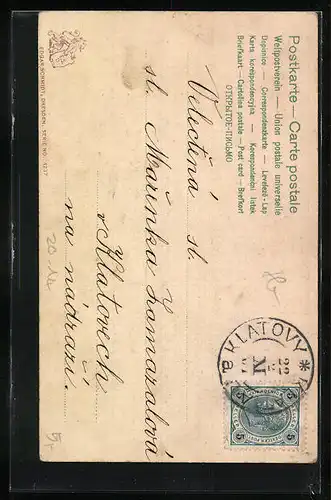 Postkarte — Carte postale
Weltpostverein — Union postale universelle
Dopisnice — Correspondenzkarte — Levelező-Lap
Karta korespondencyjna — Korespondenční lístek
Briefkaart — Cartolina postale — Post card — Brefkort
ОТКРЫТОЕ-ПИСЬМО
Velectěná sl.
sl. Mařinka Zamazalová
v Klatovech
na nádraží.
KLATOVY
22
XI
a
5 5
20
EDGAR SCHMIDT, DRESDEN. SERIE NO.